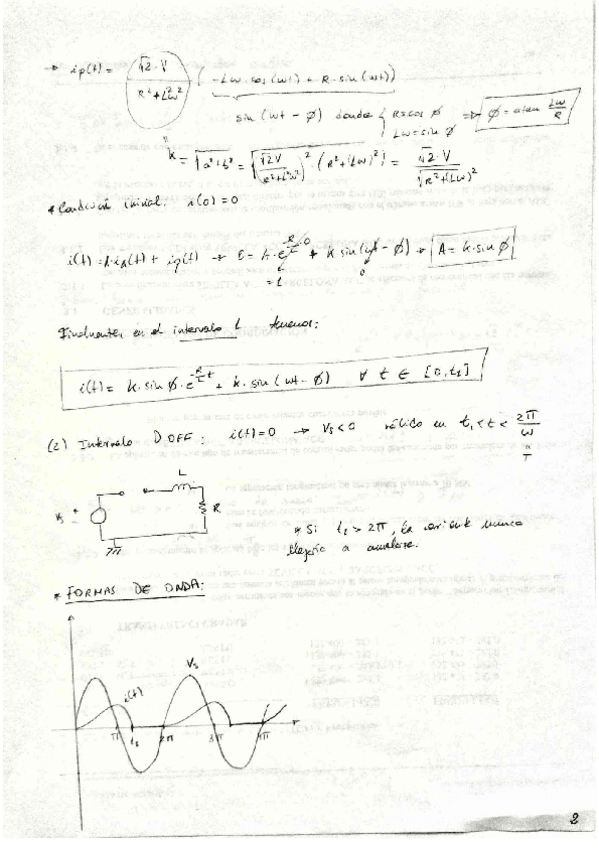 → ip(t) = √2·V / (R²+L²ω²) (-Lω·cos(ωt) + R·sin(ωt))
sin(ωt - φ) donde { R=cos φ Lω=sin φ ⇒ φ = atan Lω/R
k = √(a²+b²) = √((√2V / (R²+L²ω²))² · (R²+(Lω)²)) = √2·V / √(R²+(Lω)²)
* Condición inicial: i(0)=0
→ 0 = A·e^(-R/L·0) + k·sin(ωt - φ) → A = k·sin φ
=1 0
Finalmente, en el intervalo 1 tenemos:
i(t) = k·sin φ·e^(-R/L t) + k·sin(ωt - φ) ∀ t ∈ [0,t₁]
(2) Intervalo D OFF: i(t)=0 → Vs<0 válido en t₁<t< 2π/ω
T
L
Vs + R
* Si t₁>2π, la corriente nunca
llegaría a anularse.
* FORMAS DE ONDA:
Vs
i(t)
π t₁ 2π 3π 4π
2